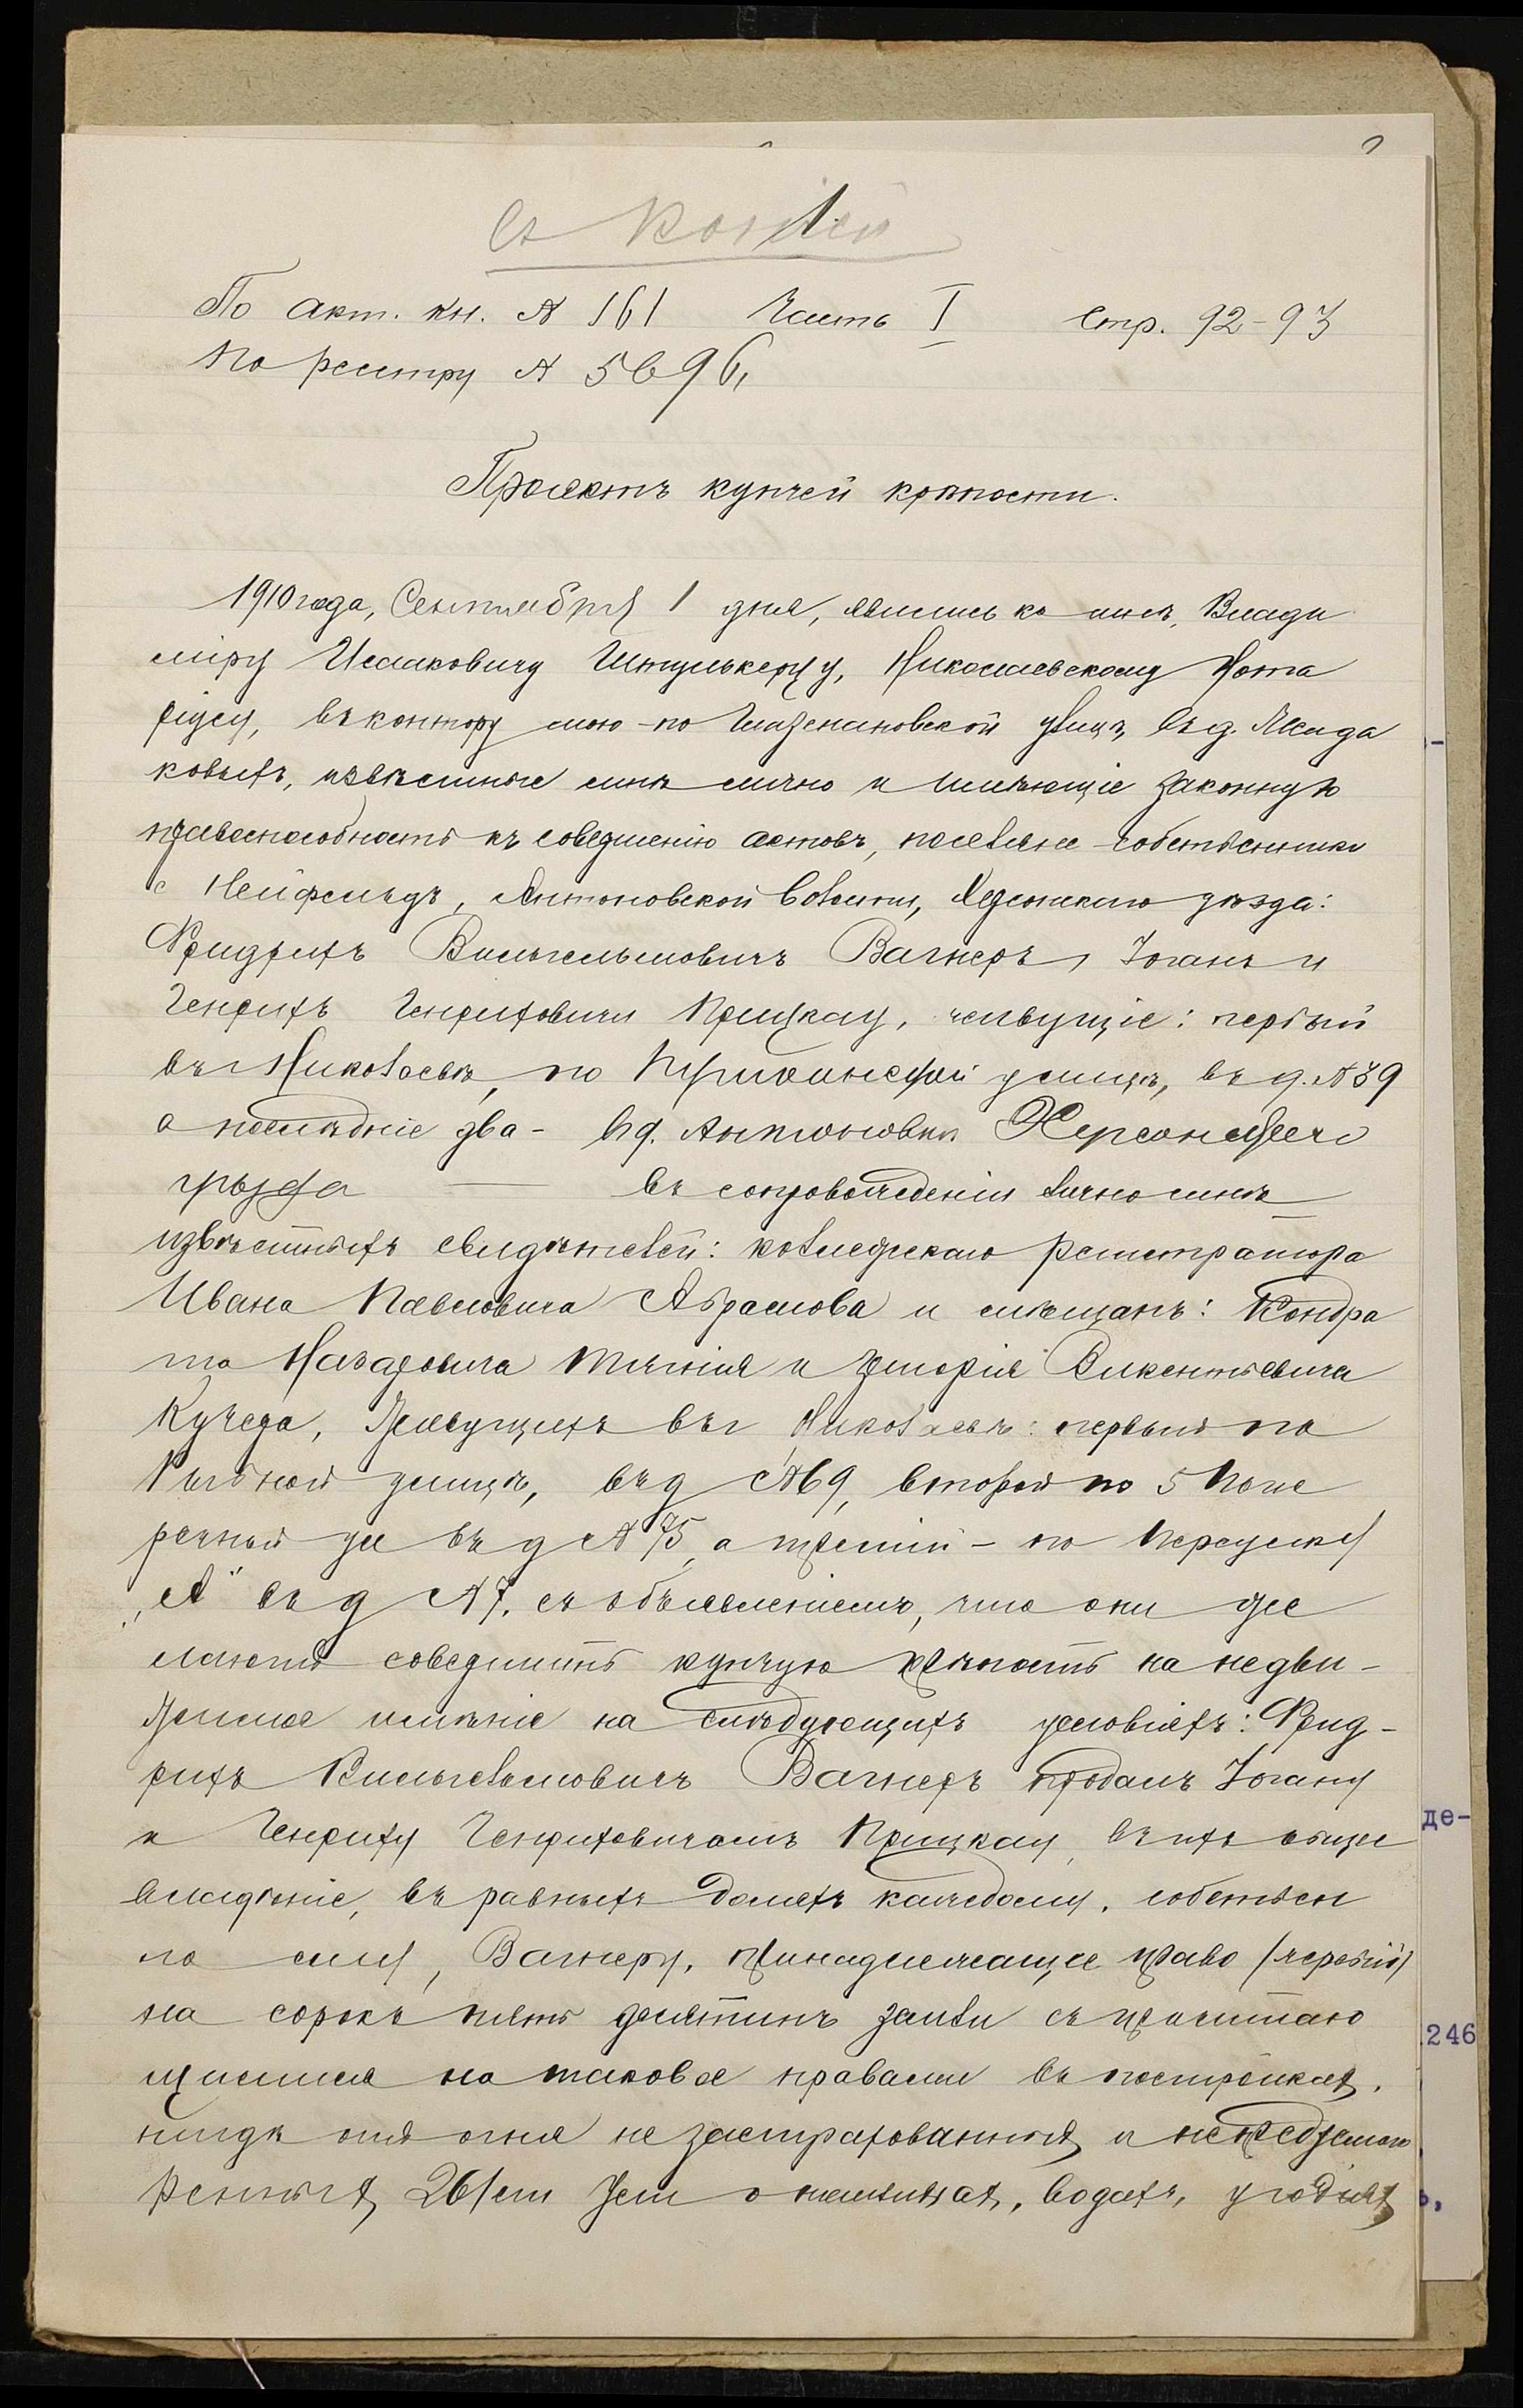 Съ копіей
По акт. кн. № 161 Часть I Стр. 92-93
По реестру № 5696,
Проектъ купчей крѣпости.
1910 года, Сентября 1 дня, явились ко мнѣ, Влади
міру Исааковичу Штулькерцу, Николаевскому Нота
ріусу, въ контору мою - по улицѣ, въ д.
ковыхъ, извѣстные мнѣ лично и имѣющіе законную
правоспособность къ совершенію актовъ, поселяне-собственники
с Нейфельдъ, Антоновской волости, Херсонскаго уѣзда:
Фридрихъ Вильгельмовичъ Вагнеръ, Іоганъ и
Генрихъ Генриховичи Прицкау, живущіе: первый
въ г Николаевѣ, по улицѣ, въ д. № 39
а послѣдніе два - въ д. Антоновкѣ Херсонскаго
уѣзда — въ сопровожденіи лично мнѣ
извѣстныхъ свидѣтелей: коллежскаго регистратора
Ивана Павловича Абрамова и мѣщанъ: Кондра
та Назаровича и Викентьевича
Кучера, живущихъ въ г Николаевѣ: первый по
Рыбной улицѣ, въ д № 69, второй по 5 Попе
речной ул въ д № 75, а третій - по переулку
„А" въ д № 7, съ объявленіемъ, что они же
лаютъ совершить купчую крѣпость на недви-
жимое имѣніе на слѣдующихъ условіяхъ: Фрид-
рихъ Вильгельмовичъ Вагнеръ продалъ Іогану
и Генриху Генриховичамъ Прицкау, въ ихъ общее
владѣніе, въ равныхъ доляхъ каждому, собствен
но ему, Вагнеру, принадлежащее право (жеребій)
на сорокъ пять десятинъ земли съ причитаю
щимися на таковое правами въ постройкахъ,
нигдѣ отъ огня не застрахованныхъ и
246
де-
водахъ, угодьяхъ